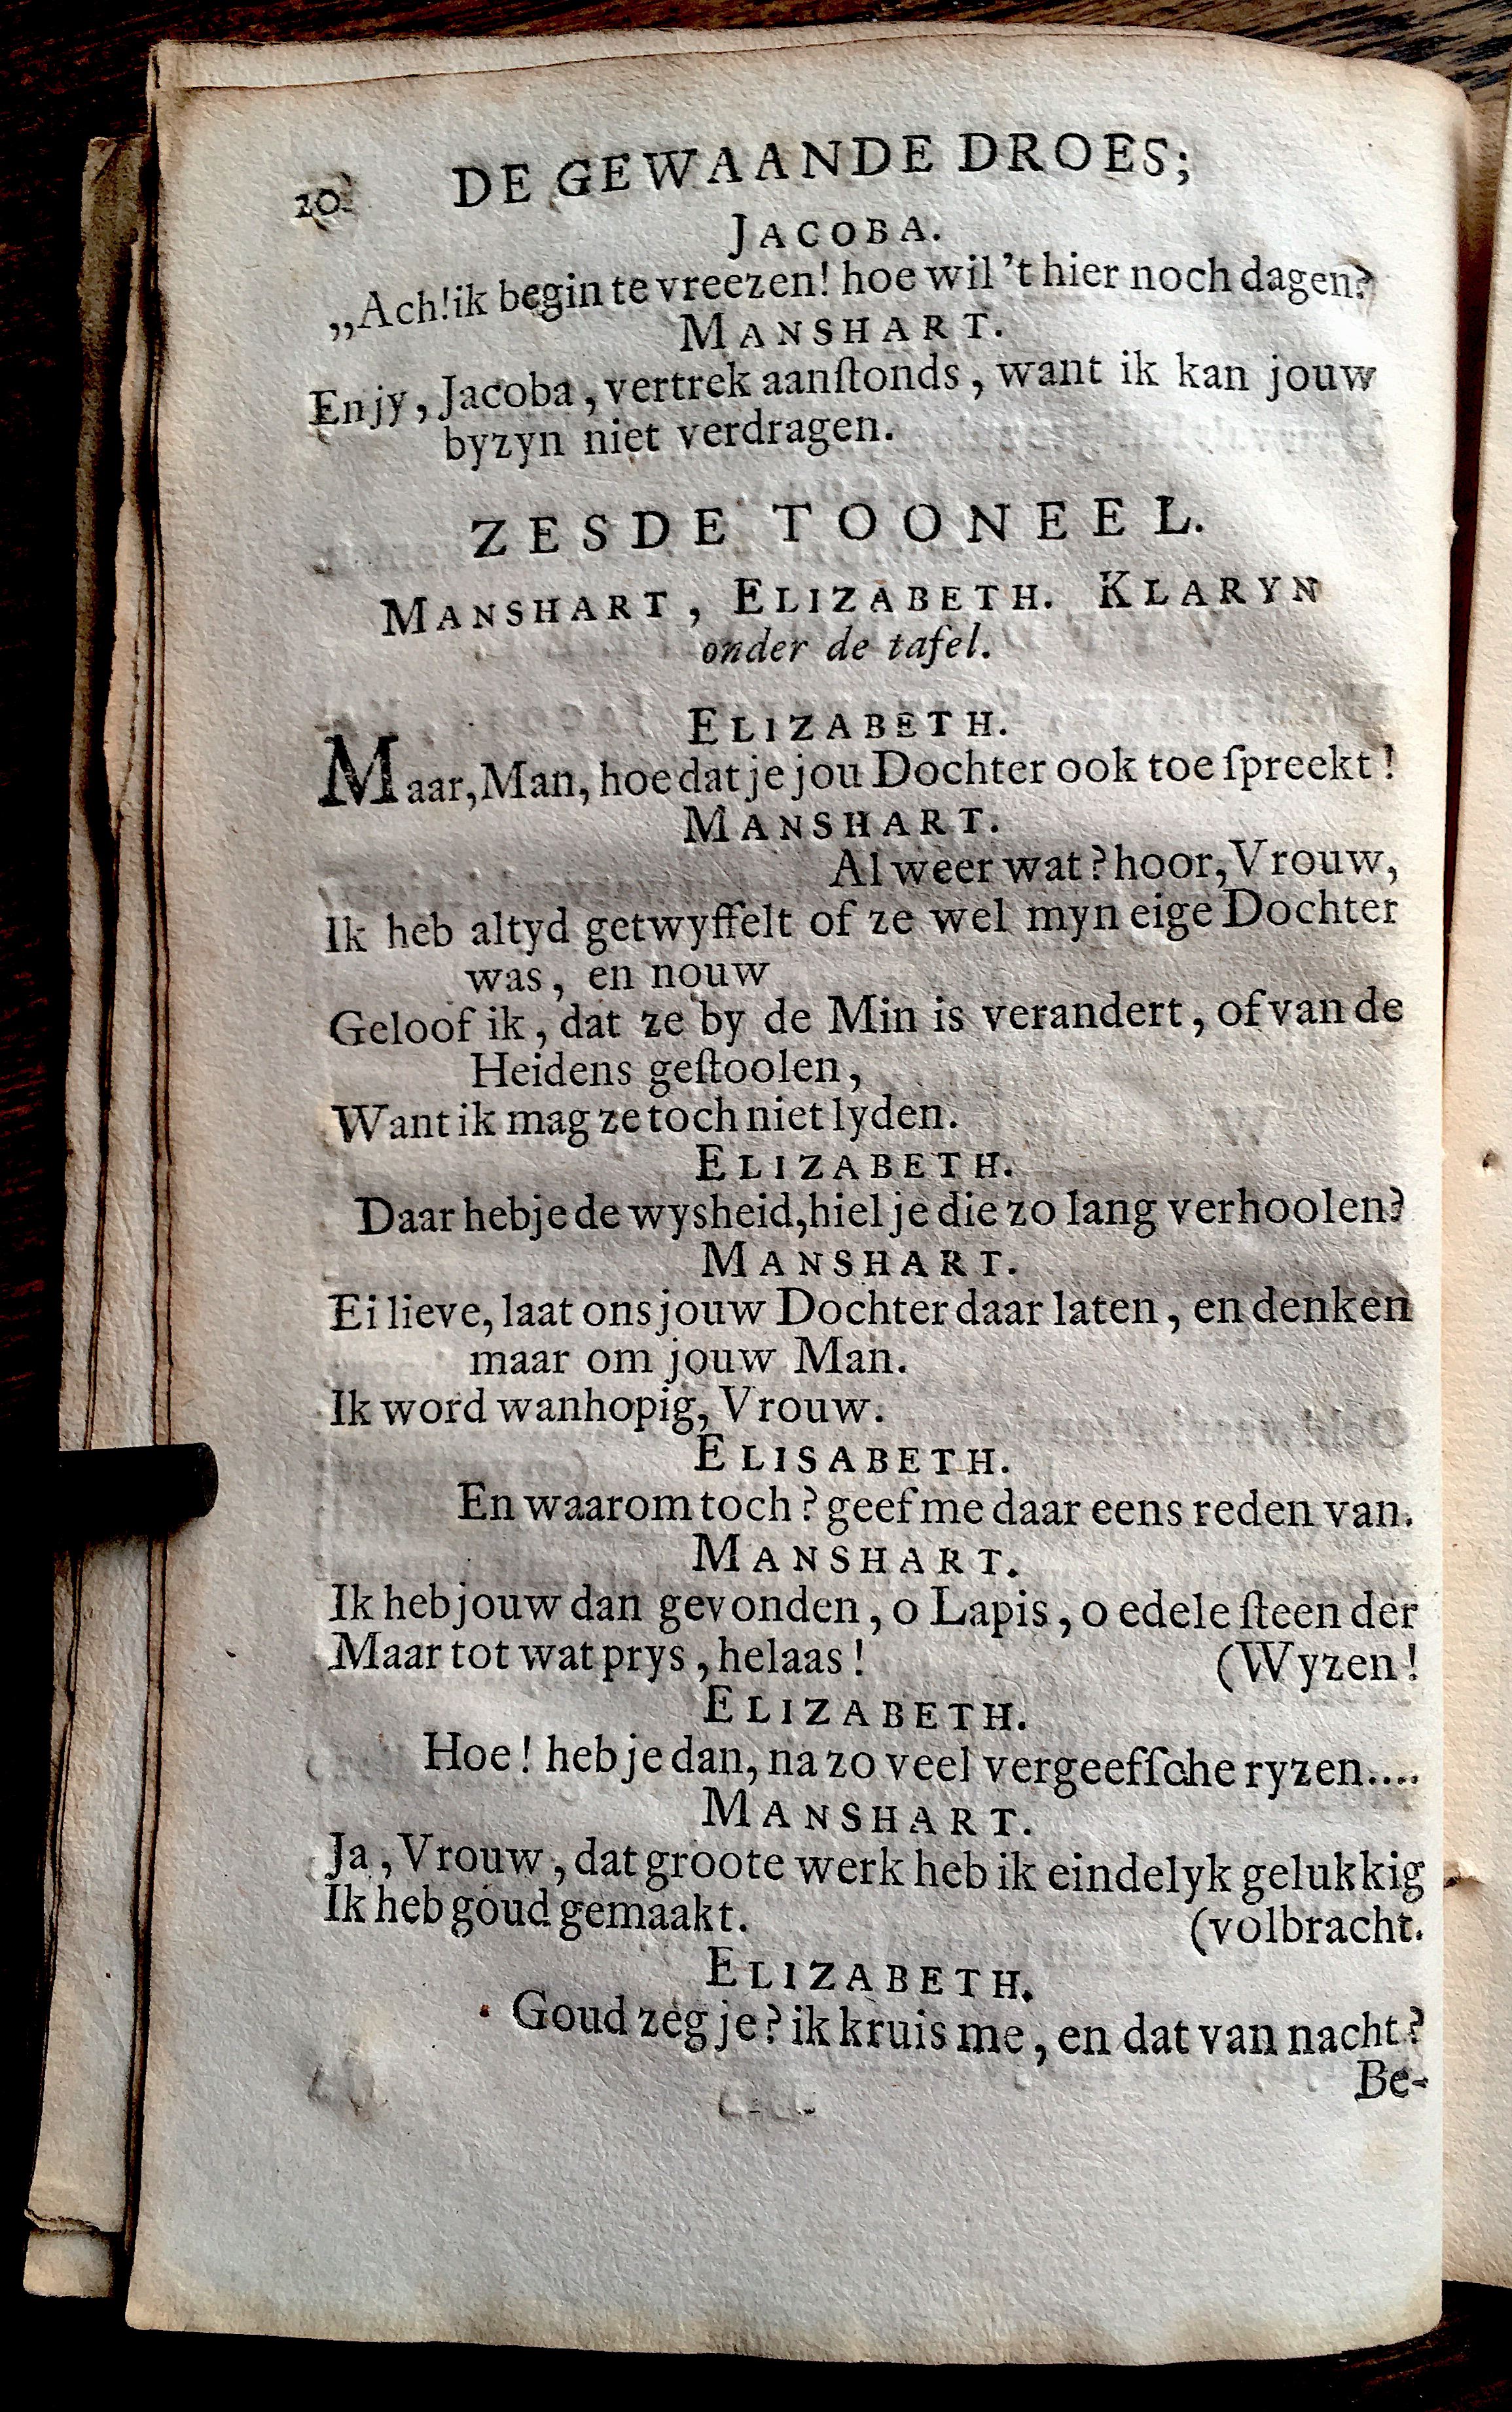 20 DE GEWAANDE DROES;
JACOBA.
„Ach! ik begin te vreezen! hoe wil 't hier noch dagen?
MANSHART.
En jy, Jacoba, vertrek aanſtonds, want ik kan jouw
byzyn niet verdragen.
ZESDE TOONEEL.
MANSHART, ELIZABETH. KLARYN
onder de tafel.
ELIZABETH.
Maar, Man, hoe dat je jou Dochter ook toe ſpreekt!
MANSHART.
Al weer wat? hoor, Vrouw,
Ik heb altyd getwyffelt of ze wel myn eige Dochter
was, en nouw
Geloof ik, dat ze by de Min is verandert, of van de
Heidens geſtoolen,
Want ik mag ze toch niet lyden.
ELIZABETH.
Daar hebje de wysheid, hiel je die zo lang verhoolen?
MANSHART.
Ei lieve, laat ons jouw Dochter daar laten, en denken
maar om jouw Man.
Ik word wanhopig, Vrouw.
ELISABETH.
En waarom toch? geef me daar eens reden van.
MANSHART.
Ik heb jouw dan gevonden, o Lapis, o edele ſteen der
Maar tot wat prys, helaas! (Wyzen!
ELIZABETH.
Hoe! heb je dan, na zo veel vergeefſche ryzen....
MANSHART.
Ja, Vrouw, dat groote werk heb ik eindelyk gelukkig
Ik heb goud gemaakt. (volbracht.
ELIZABETH.
Goud zeg je? ik kruis me, en dat van nacht?
Be-